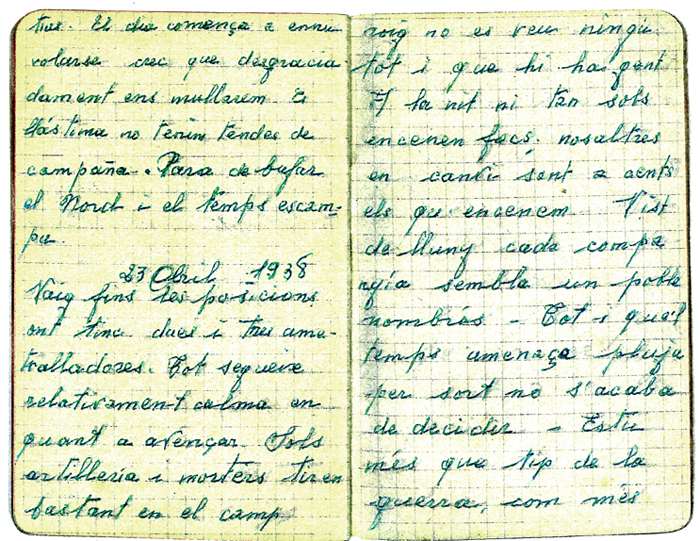 tiu. El dia comença a ennu
volarse crec que desgracia-
dament ens mullarem. Es
llástima no tenin tendes de
campaña. Para de bufar
el Nord i el temps escam-
pa.
23 Abril 1938
Vaig fins les posicions
ont tinc dues i tres ame-
tralladores. Tot segueix
relativament calma en
quant a avençar. Sols
artilleria i morters tiren
bastant en el camp
roig no es veu ningú
tót i que hi ha gent
A la nit ni tan sols
encenen focs, nosaltres
en canvi sont a cents
els qu encenem. Vist
de lluny cada compa
ñyia sembla un poble
nombrós - Tot i que'l
temps amenaça pluja
per sort no s'acaba
de decidir - Estic
més que tip de la
guerra, com més